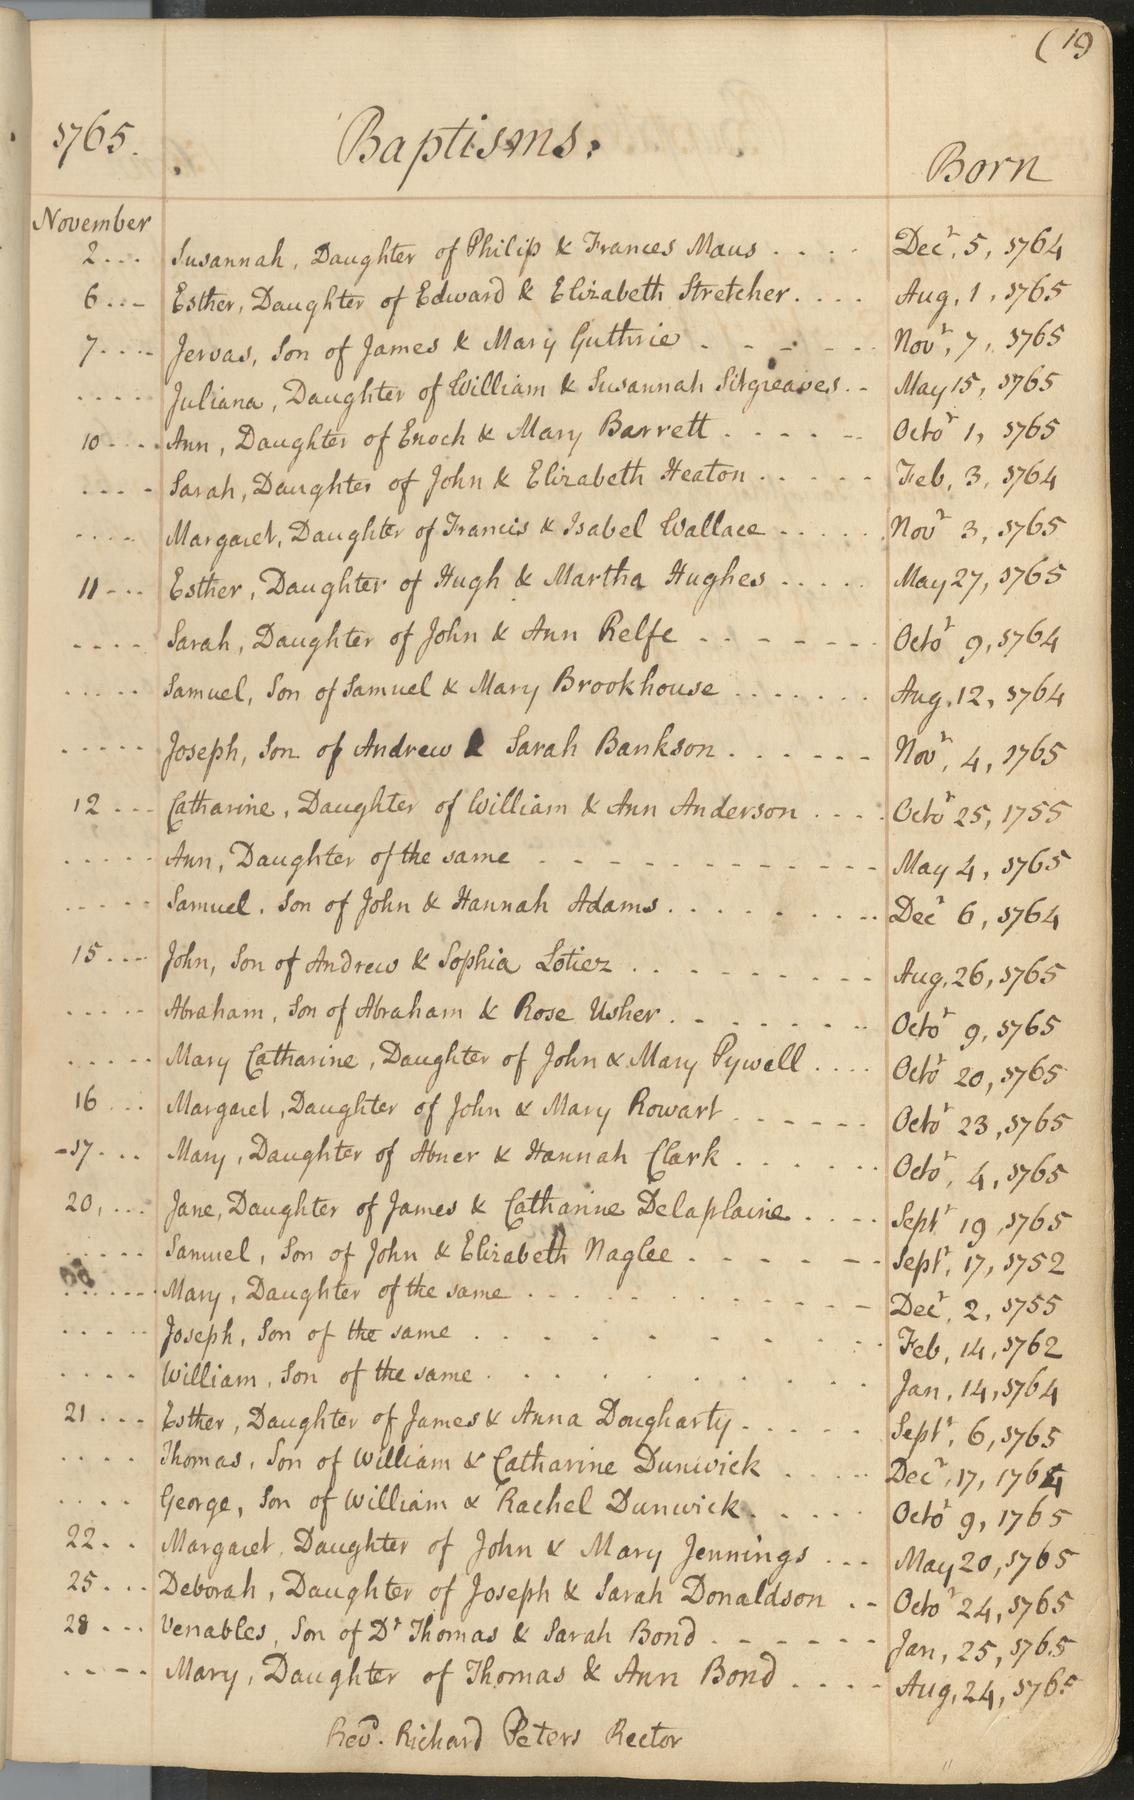 (19
1765. Baptisms: Born
November
2... Susannah, Daughter of Philip & Frances Maus .... Decr. 5, 1764
6... Esther, Daughter of Edward & Elizabeth Stretcher.... Aug, 1, 1765
7.... Jervas, Son of James & Mary Guthrie ...... Novr, 7, 1765
.... Juliana, Daughter of William & Susannah Sitgreaves.. May 15, 1765
10.... Ann, Daughter of Enoch & Mary Barrett ..... Octor 1, 1765
.... Sarah, Daughter of John & Elizabeth Heaton ..... Feb, 3, 1764
.... Margaret, Daughter of Francis & Isabel Wallace ..... Novr 3, 1765
11... Esther, Daughter of Hugh & Martha Hughes ..... May 27, 1765
.... Sarah, Daughter of John & Ann Relfe ....... Octor 9, 1764
..... Samuel, Son of Samuel & Mary Brookhouse ....... Aug, 12, 1764
..... Joseph, Son of Andrew & Sarah Bankson ...... Novr, 4, 1765
12... Catharine, Daughter of William & Ann Anderson .... Octor 25, 1755
..... Ann, Daughter of the same ............ May 4, 1765
..... Samuel, Son of John & Hannah Adams......... Decr 6, 1764
15... John, Son of Andrew & Sophia Lotiez ......... Aug, 26, 1765
..... Abraham, Son of Abraham & Rose Usher........ Octor 9, 1765
..... Mary Catharine, Daughter of John & Mary Pywell .... Octor 20, 1765
16... Margaret, Daughter of John & Mary Rowart ...... Octor 23, 1765
-17... Mary, Daughter of Abner & Hannah Clark ...... Octor, 4, 1765
20,... Jane, Daughter of James & Catharine Delaplaine .... Septr 19, 1765
..... Samuel, Son of John & Elizabeth Naglee ...... Septr, 17, 1752
..... Mary, Daughter of the same ............ Decr, 2, 1755
..... Joseph, Son of the same ......... Feb, 14, 1762
.... William, Son of the same ......... Jan, 14, 1764
21... Esther, Daughter of James & Anna Dougharty...... Septr, 6, 1765
.... Thomas, Son of William & Catharine Dunwick ..... Decr, 17, 1764
.... George, Son of William & Rachel Dunwick...... Octor 9, 1765
22.. Margaret, Daughter of John & Mary Jennings ... May 20, 1765
25... Deborah, Daughter of Joseph & Sarah Donaldson .. Octor 24, 1765
28... Venables, Son of Dr Thomas & Sarah Bond ...... Jan, 25, 1765
.... Mary, Daughter of Thomas & Ann Bond .... Aug, 24, 1765
Revd. Richard Peters Rector